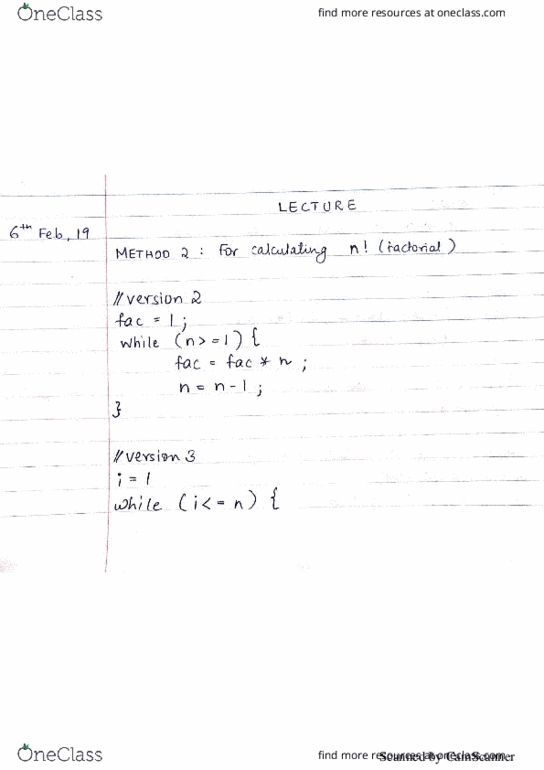 OneClass
find more resources at oneclass.com
LECTURE
6th Feb, 19
METHOD 2 : For calculating n! (factorial)
// version 2
fac = 1 ;
while (n>=1) {
fac = fac * n ;
n = n - 1 ;
}
// version 3
i = 1
while (i<=n) {
OneClass
find more resources at oneclass.com
Scanned by CamScanner